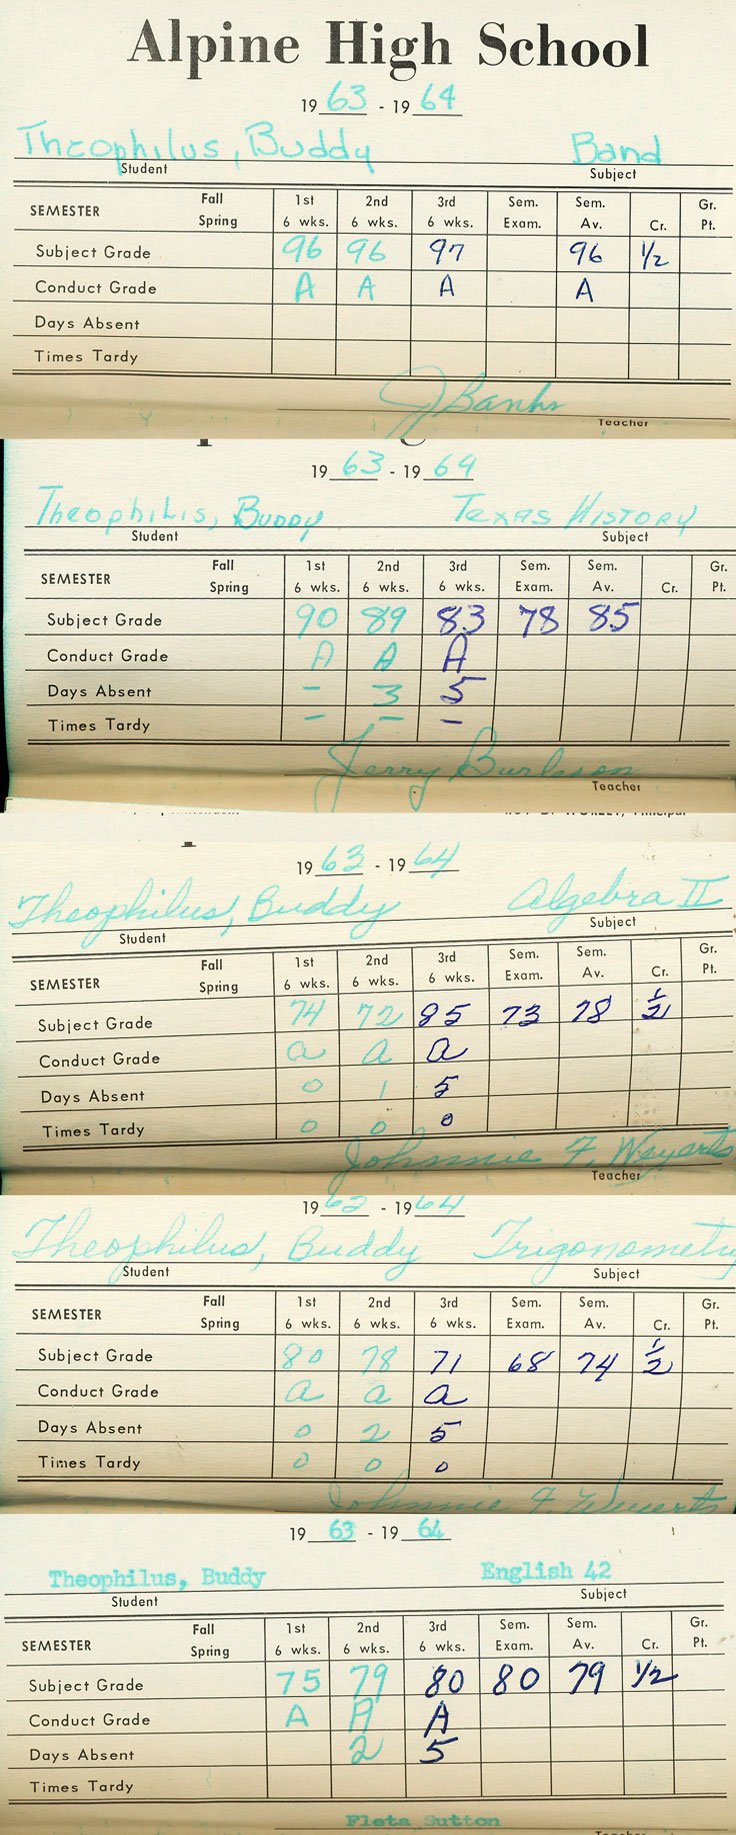 Alpine High School
19 63 - 19 64
Theophilus, Buddy Band
Student Subject
SEMESTER Fall Spring 1st 6 wks. 2nd 6 wks. 3rd 6 wks. Sem. Exam. Sem. Av. Cr. Gr. Pt.
Subject Grade 96 96 97 96 1/2
Conduct Grade A A A A
Days Absent
Times Tardy
J Banks
Teacher
19 63 - 19 64
Theophilis, Buddy Texas History
Student Subject
SEMESTER Fall Spring 1st 6 wks. 2nd 6 wks. 3rd 6 wks. Sem. Exam. Sem. Av. Cr. Gr. Pt.
Subject Grade 90 89 83 78 85
Conduct Grade A A A
Days Absent - 3 5
Times Tardy - - -
Jerry Burlsson
Teacher
Principal
19 63 - 19 64
Theophilus, Buddy Algebra II
Student Subject
SEMESTER Fall Spring 1st 6 wks. 2nd 6 wks. 3rd 6 wks. Sem. Exam. Sem. Av. Cr. Gr. Pt.
Subject Grade 74 72 85 73 78 1/2
Conduct Grade a a a
Days Absent 0 1 5
Times Tardy 0 0 0
Johnnie F. Weyerts
Teacher
19 - 19 64
Theophilus, Buddy Trigonometry
Student Subject
SEMESTER Fall Spring 1st 6 wks. 2nd 6 wks. 3rd 6 wks. Sem. Exam. Sem. Av. Cr. Gr. Pt.
Subject Grade 80 78 71 68 74 1/2
Conduct Grade a a a
Days Absent 0 2 5
Times Tardy 0 0 0
Johnnie F. Weyerts
19 63 - 19 64
Theophilus, Buddy English 42
Student Subject
SEMESTER Fall Spring 1st 6 wks. 2nd 6 wks. 3rd 6 wks. Sem. Exam. Sem. Av. Cr. Gr. Pt.
Subject Grade 75 79 80 80 79 1/2
Conduct Grade A A A
Days Absent 2 5
Times Tardy
Fleta Sutton
Teacher